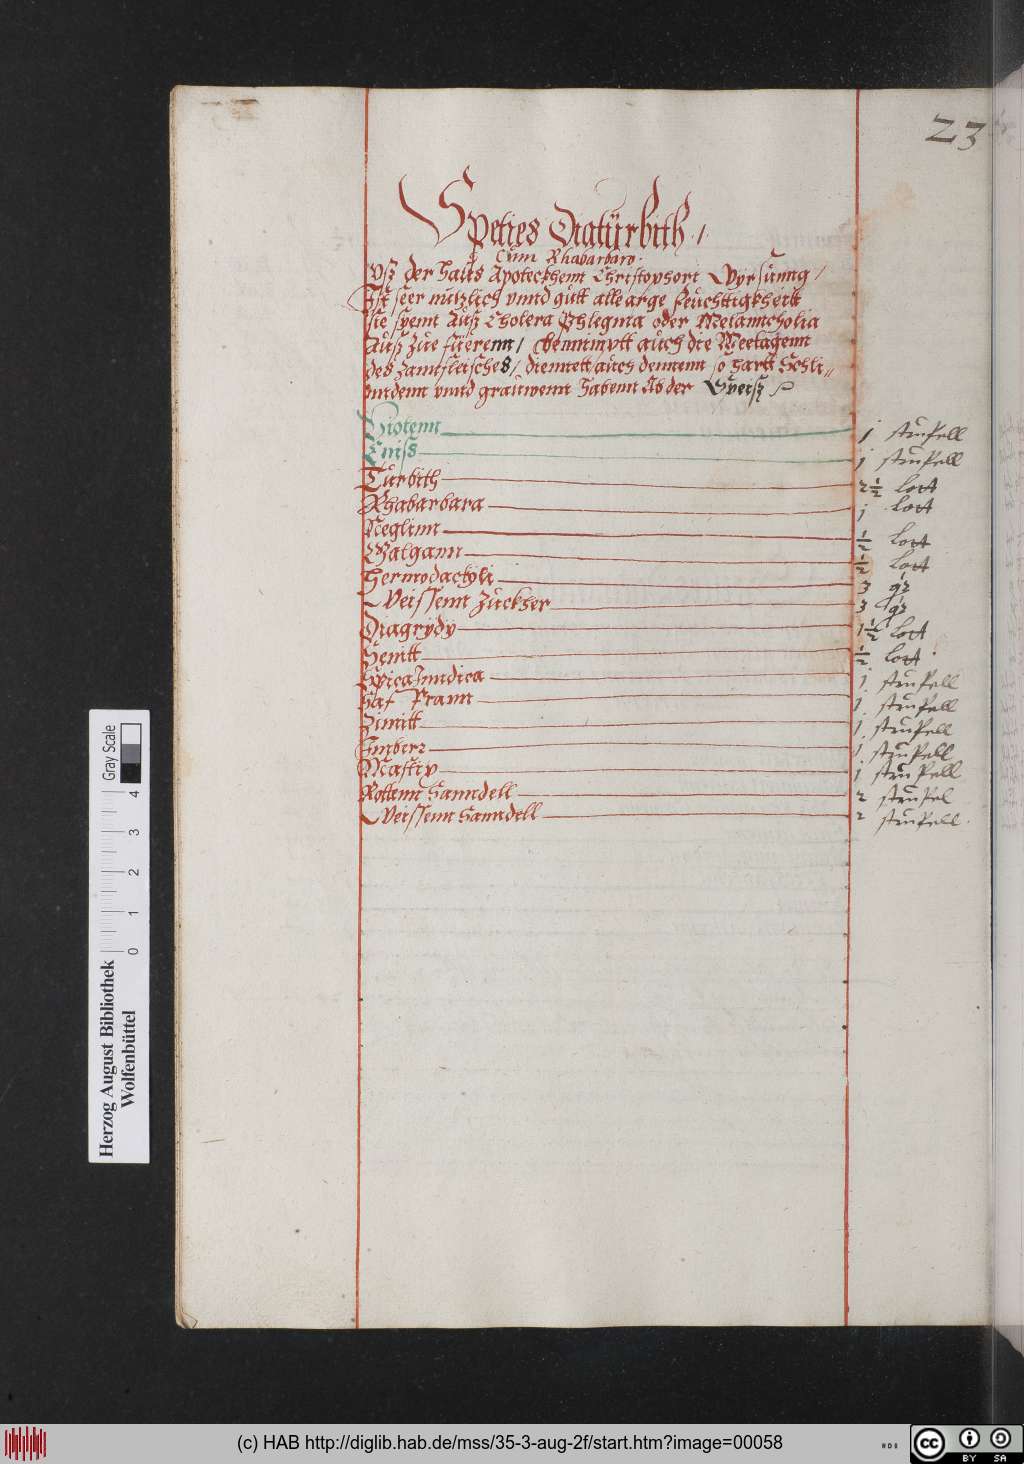 23
Speties Diatürbith /
Cum Rhabarbaro.
Uß der Hauß Apoteckhenn Christophori Wyrsünng /
Ist seer nutzlich vnnd gůtt alle arge feuchttigkheitt
sie seyenn Auß Cholera Phlegma oder Melanncholia
Auß Zue füerenn / benimptt auch die Weetagenn
des Zanfleisches / diennett auch dennenn so hartt Schli-
inndenn vnnd grauwenn habenn Ab der Speiß
Violenn j scrupell
Eniß j scrupell
Turbith 2½ Lott
Rhabarbara j Lott
Neglinn ½ Lott
Galgann ½ Lott
Hermodactyli 3 qz
Weissenn Zuckher 3 qz
Diagrydy 1½ Lott
Senitt ½ Lott
Spica Inndica j. scrupell
Saf Frann 1. scrupell
Zimitt j. scrupell
Imberr 1. scrupell
Mastix 1 scrupell
Rottenn Sanndell 2 scrupel
Weissenn Sanndell 2 scrupell.
Herzog August Bibliothek
Wolfenbüttel
0 1 2 3 4
Gray Scale
(c) HAB http://diglib.hab.de/mss/35-3-aug-2f/start.htm?image=00058
cc BY SA